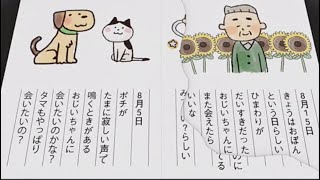 8月15日
きょうはおぼん
という日らしい
ひまわりが
だいすきだった
おじいちゃん
また会えたら
いいな
らしい
8月5日
ポチが
たまに寂しい声で
鳴くときがある
おじいちゃんに
会いたいのかな？
タマもやっぱり
会いたいの？